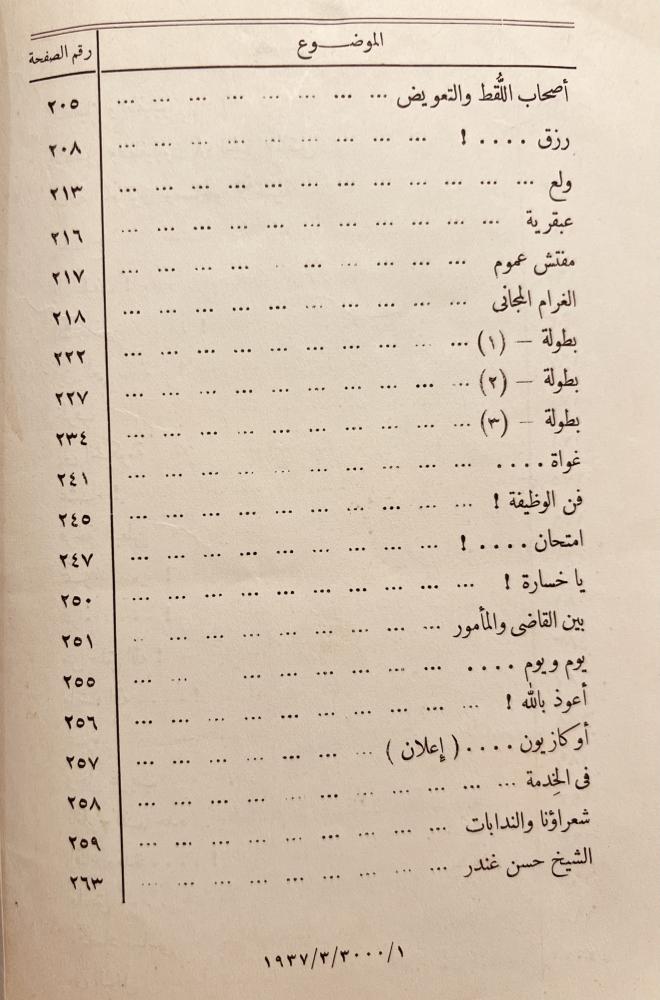 الموضـــوع رقم الصفحة
أصحاب اللُّقط والتعويض ... ... ... ... ... ... ... ... ٢٠٥
رزق .... ! ... ... ... ... ... ... ... ... ... ٢٠٨
ولع ... ... ... ... ... ... ... ... ... ... ... ... ٢١٣
عبقرية ... ... ... ... ... ... ... ... ... ... ... ٢١٦
مفتش عموم ... ... ... ... ... ... ... ... ... ٢١٧
الغرام المجانى ... ... ... ... ... ... ... ... ... ... ٢١٨
بطولة – (١) ... ... ... ... ... ... ... ... ... ... ٢٢٢
بطولة – (٢) ... ... ... ... ... ... ... ... ... ... ٢٢٧
بطولة – (٣) ... ... ... ... ... ... ... ... ... ... ٢٣٤
غواة .... ... ... ... ... ... ... ... ... ... ... ٢٤١
فن الوظيفة ! ... ... ... ... ... ... ... ... ... ... ٢٤٥
امتحان .... ! ... ... ... ... ... ... ... ... ... ٢٤٧
يا خسارة ! ... ... ... ... ... ... ... ... ... ... ٢٥٠
بين القاضى والمأمور ... ... ... ... ... ... ... ... ... ٢٥١
يوم ويوم .... ... ... ... ... ... ... ... ... ٢٥٥
أعوذ بالله ! ... ... ... ... ... ... ... ... ... ... ٢٥٦
أوكازيون .... ( إعلان ) ... ... ... ... ... ... ... ٢٥٧
فى الخِدمة ... ... ... ... ... ... ... ... ... ... ... ٢٥٨
شعراؤنا والندابات ... ... ... ... ... ... ... ... ... ٢٥٩
الشيخ حسن غندر ... ... ... ... ... ... ... ... ... ٢٦٣
١٩٣٧/٣/٣٠٠٠/١